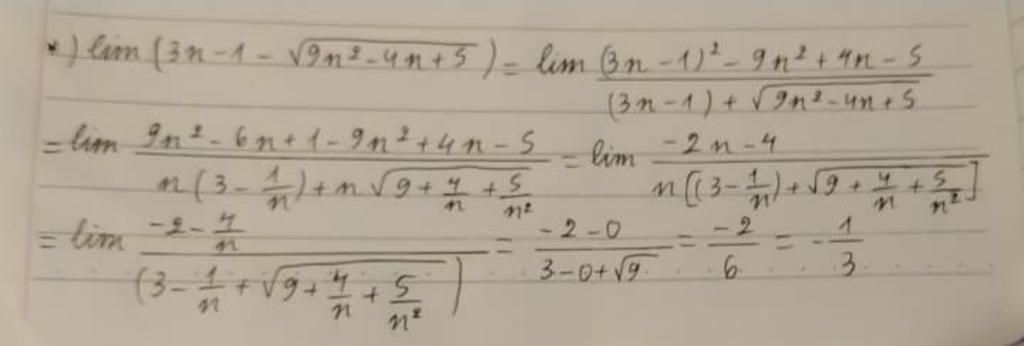 *) lim (3n-1-√(9n²-4n+5)) = lim ((3n-1)²-9n²+4n-5)/((3n-1)+√(9n²-4n+5))
= lim (9n²-6n+1-9n²+4n-5)/(n(3-1/n)+n√(9+4/n+5/n²)) = lim (-2n-4)/(n[(3-1/n)+√(9+4/n+5/n²)])
= lim (-2-4/n)/((3-1/n+√(9+4/n+5/n²))) = (-2-0)/(3-0+√9) = -2/6 = -1/3